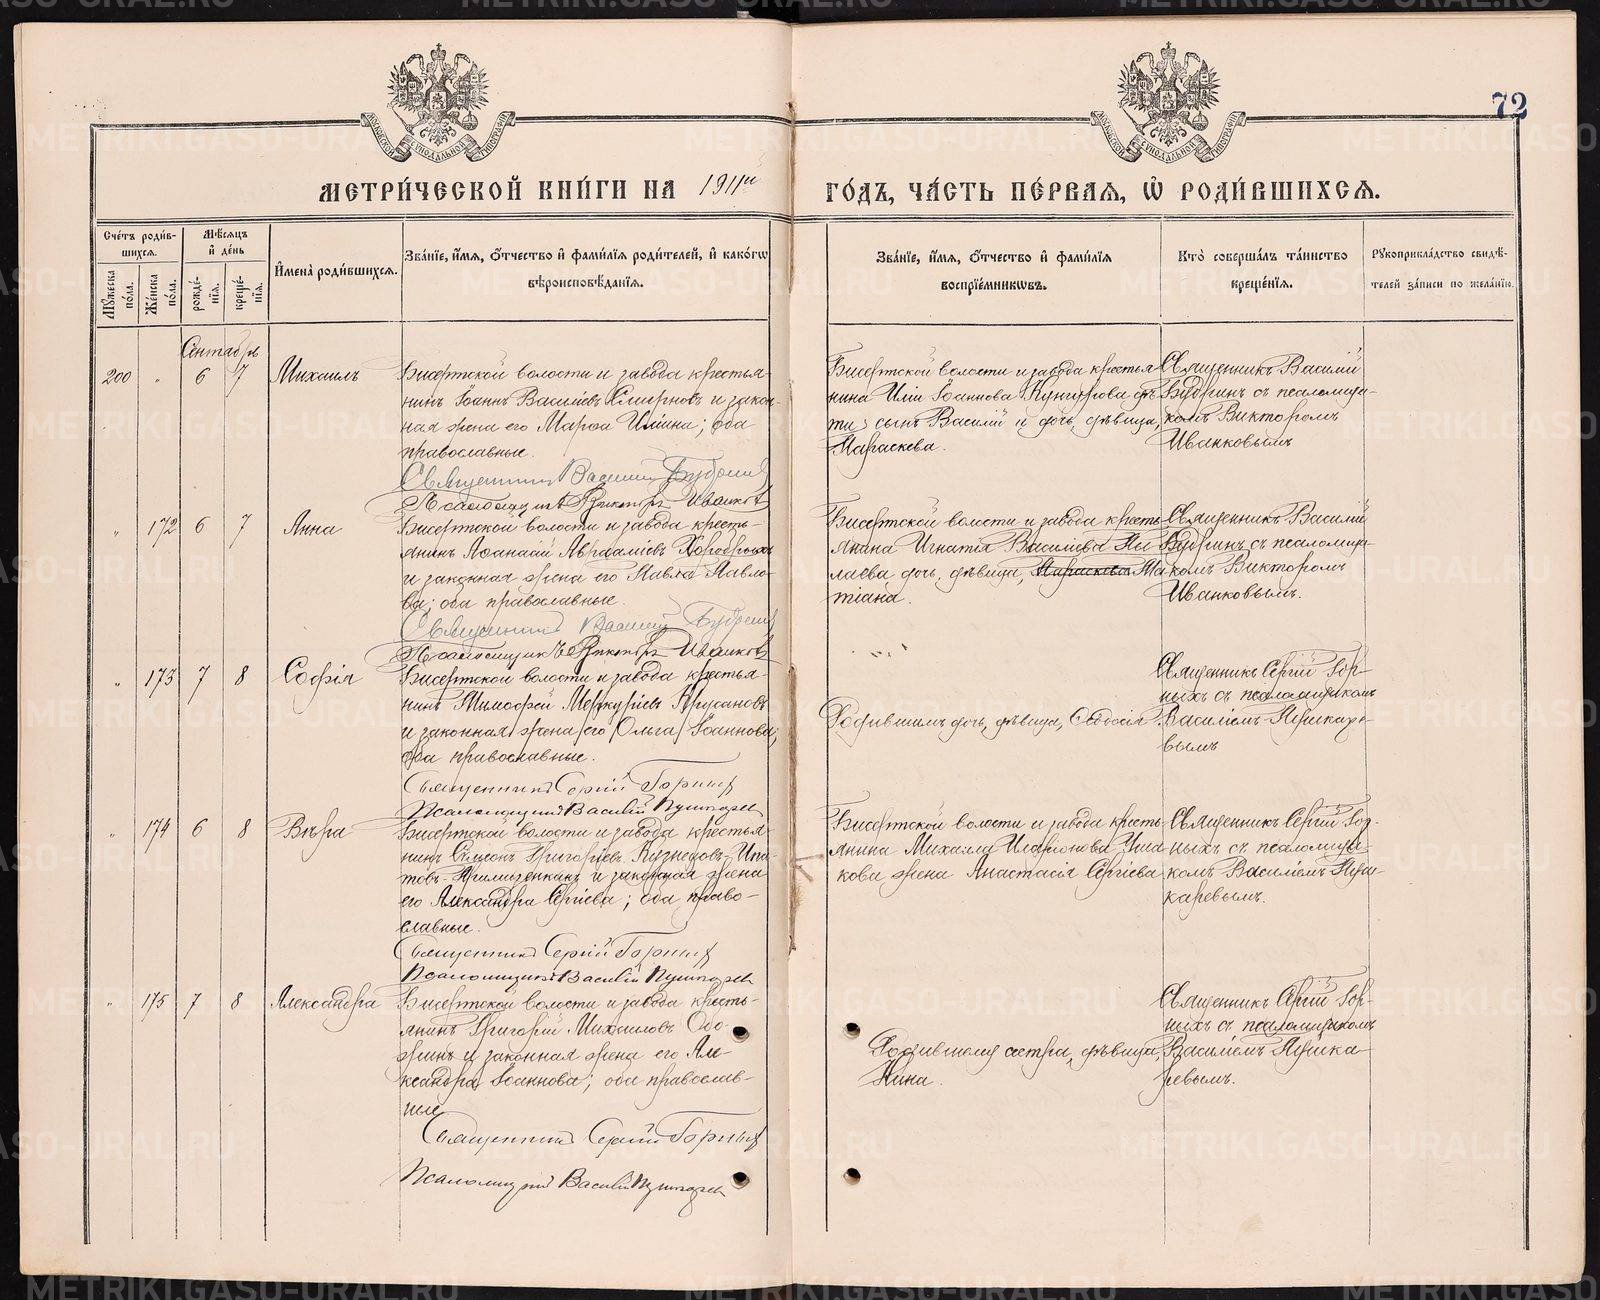 72
МЕТРИ́ЧЕСКОЙ КНИ́ГИ НА 1911й ГО́ДЪ, ЧА́СТЬ ПЕ́РВАЯ, Ѡ҆ РОДИ́ВШИХСѦ.
Сче́тъ роди́в-
шихсѧ.
Мꙋ́жеска по́ла.
Же́нска по́ла.
Мѣ́сѧцъ
и҆ де́нь
рожде́-
нїѧ.
креще́-
нїѧ.
И҆мена̀ роди́вшихсѧ.
Зва́нїе, и҆́мѧ, ѻ҆́тчество и҆ фами́лїѧ роди́телей, и҆ како́гѡ
вѣроисповѣ́данїѧ.
Зва́нїе, и҆́мѧ, ѻ҆́тчество и҆ фами́лїѧ
воспрїе́мникѡвъ.
Кто̀ соверша́лъ та́инство
креще́нїѧ.
Рꙋкоприкла́дство свидѣ́-
телей за́писи по жела́нїю.
Сентябрь
200 " 6 7 Михаилъ
Бисертской волости и завода крестья-
нинъ Іоаннъ Василіевъ Смирновъ и закон-
ная жена его Марѳа Иліина; оба
православные.
Священникъ Василій Будринъ
Псаломщикъ Викторъ Иванковъ
Бисертской волости и завода крестья-
нина Иліи Іоаннова Кунгурова дѣ-
ти: сынъ Василій и дочь, дѣвица,
Параскева.
Священникъ Василій
Будринъ съ псаломщи-
комъ Викторомъ
Иванковымъ
" 172 6 7 Анна
Бисертской волости и завода кресть-
янинъ Аѳанасій Авраамиевъ Хоробрыхъ
и законная жена его Павла Павло-
ва; оба православные.
Священникъ Василій Будринъ
Псаломщикъ Викторъ Иванковъ
Бисертской волости и завода кресть-
янина Игнатія Василіева Ни-
лаева дочь, дѣвица, Параскева Та-
тіана.
Священникъ Василій
Будринъ съ псаломщи-
комъ Викторомъ
Иванковымъ.
" 173 7 8 Софія
Бисертской волости и завода крестья-
нинъ Тимоѳей Меркуріевъ Крусановъ
и законная жена его Ольга Іоаннова;
оба православные.
Священникъ Сергій Горныхъ
Псаломщикъ Василій Пушкаревъ
дочь, дѣвица,
Священникъ Сергій Гор-
ныхъ съ псаломщикомъ
Василіемъ Пушкаре-
вымъ
" 174 6 8 Вѣра
Бисертской волости и завода крестья-
нинъ Симеонъ Григоріевъ Кузнецовъ-Ипа-
товъ и законная жена
его Александра Сергіева; оба право-
славные.
Священникъ Сергій Горныхъ
Псаломщикъ Василій Пушкаревъ
Бисертской волости и завода кресть-
янина Михаила Иларіонова
кова жена Анастасія Сергіева
Священникъ Сергій Гор-
ныхъ съ псаломщи-
комъ Василіемъ Пуш-
каревымъ.
" 175 7 8 Александра
Бисертской волости и завода кресть-
янинъ Григорій Михаиловъ Обо-
жинъ и законная жена его Але-
ксандра Іоаннова; оба православ-
ные
Священникъ Сергій Горныхъ
Псаломщикъ Василій Пушкаревъ
Родившейся сестра, дѣвица,
Нина.
Священникъ Сергій Гор-
ныхъ съ псаломщикомъ
Василіемъ Пушка-
ревымъ.
METRIKI.GASO-URAL.RU